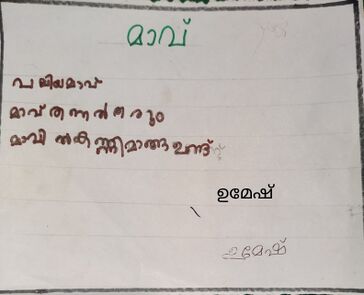 മാവ്
വലിയമാവ്
മാവ് തണൽ തരും
മാവിൽ കണ്ണിമാങ്ങ ഉണ്ട്
ഉമേഷ്
ഉമേഷ്